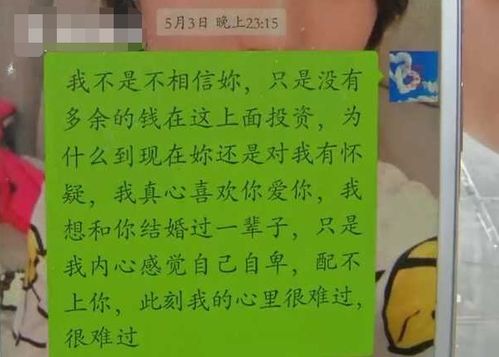 5月3日 晚上23:15
我不是不相信妳，只是没有
多余的钱在这上面投资，为
什么到现在妳还是对我有怀
疑，我真心喜欢你爱你，我
想和你结婚过一辈子，只是
我内心感觉自己自卑，配不
上你，此刻我的心里很难过，
很难过